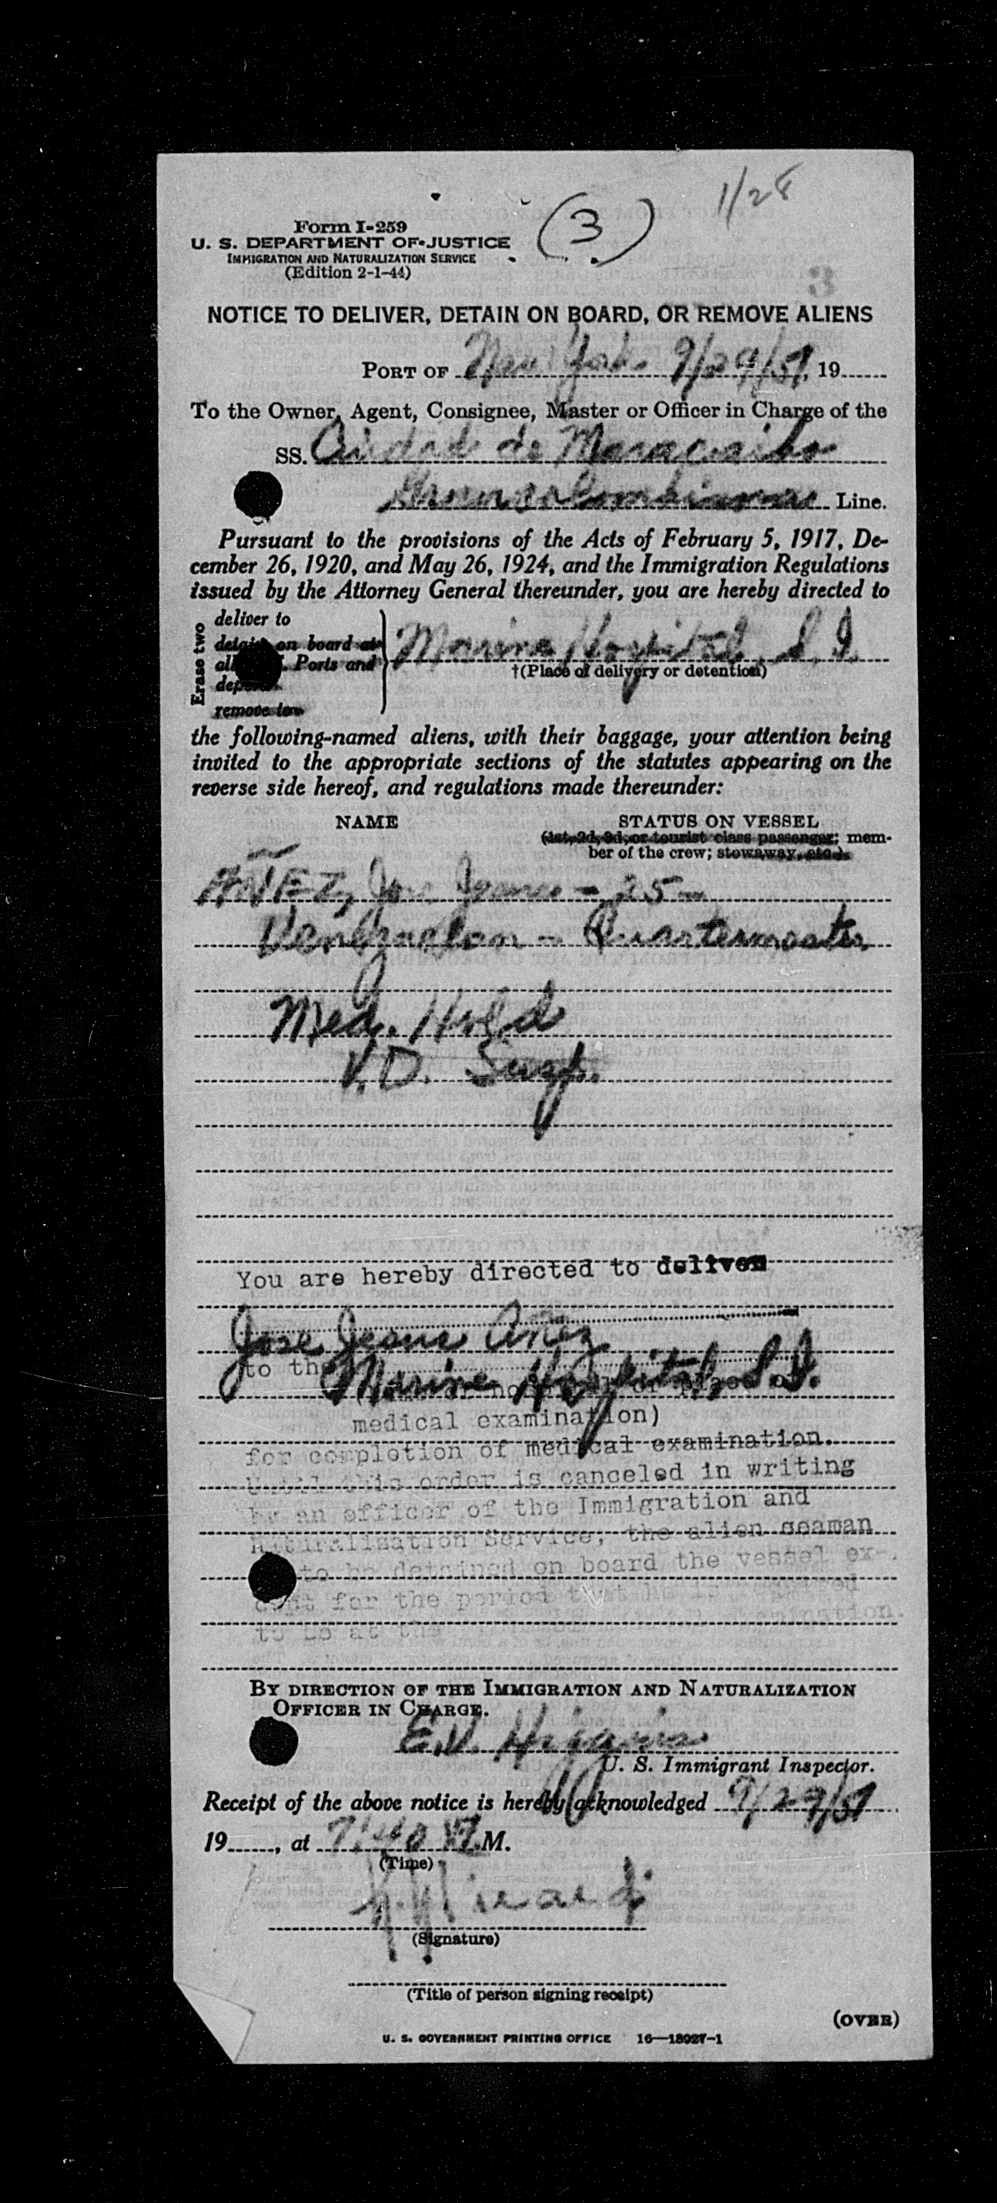 1/28
(3)
Form I-259
U. S. DEPARTMENT OF JUSTICE
IMMIGRATION AND NATURALIZATION SERVICE
(Edition 2-1-44)
3
NOTICE TO DELIVER, DETAIN ON BOARD, OR REMOVE ALIENS
PORT OF New York 9/29/51, 19
To the Owner, Agent, Consignee, Master or Officer in Charge of the
SS. Ciudad de Maracaibo
Grancolombiana Line.
Pursuant to the provisions of the Acts of February 5, 1917, De-
cember 26, 1920, and May 26, 1924, and the Immigration Regulations
issued by the Attorney General thereunder, you are hereby directed to
Erase two
deliver to
detain on board at
all Ports and
remove to
Marine Hospital, S.I.
†(Place of delivery or detention)
the following-named aliens, with their baggage, your attention being
invited to the appropriate sections of the statutes appearing on the
reverse side hereof, and regulations made thereunder:
NAME STATUS ON VESSEL
(1st, 2d, 3d, or tourist class passenger; mem-
ber of the crew; stowaway, etc.)
AÑEZ, Jose Jesus - 25 -
Venezuelan - Quartermaster
Med. Hold
V.D. Susp.
You are hereby directed to deliver
Jose Jesus Añez
to the Marine Hospital, S.I.
medical examination)
for completion of medical examination.
Until this order is canceled in writing
by an officer of the Immigration and
Naturalization Service, the alien seaman
to be detained on board the vessel ex-
cept for the period that he is
to be at the examination.
BY DIRECTION OF THE IMMIGRATION AND NATURALIZATION
OFFICER IN CHARGE.
E.V. Higgins
U. S. Immigrant Inspector.
Receipt of the above notice is hereby acknowledged 9/29/51
19, at 7:40 M.
(Time)
(Signature)
(Title of person signing receipt)
(OVER)
U. S. GOVERNMENT PRINTING OFFICE 16—18027-1